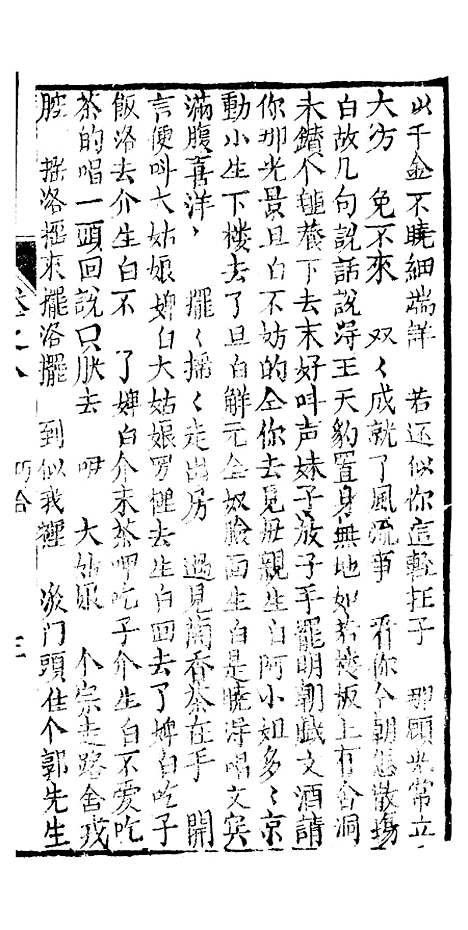 千金不曉細端詳　若还似你這輕狂子　那顧常立
大方　免不來　双〻成就了風流事　看你今朝怎散場
白故几句說話說淂王天豹置身無地如若楼板上有舍洞
末鑚个下去末好呌声妹子放子手罷明朝戲文酒請
你那光景旦白不妨的仝你去見母親生白阿小如多〻京
動小生下楼去了旦白解元仝奴面生白是曉淂唱文宾
滿腹喜洋〻　擺〻揺〻走出房　遇見蘭香茶在手　開
言便呌大姑娘婢白大姑娘罗裡去生白回去了婢白吃子
飯洛去介生白不　了婢白介末茶呷吃子介生白不爱吃
茶的唱一頭回說只朕去　呀　大姑娘　个宗走路舍戎
腔　揺洛揺來擺洛擺　到似我裡　門頭住个郭先生
卷之八　三